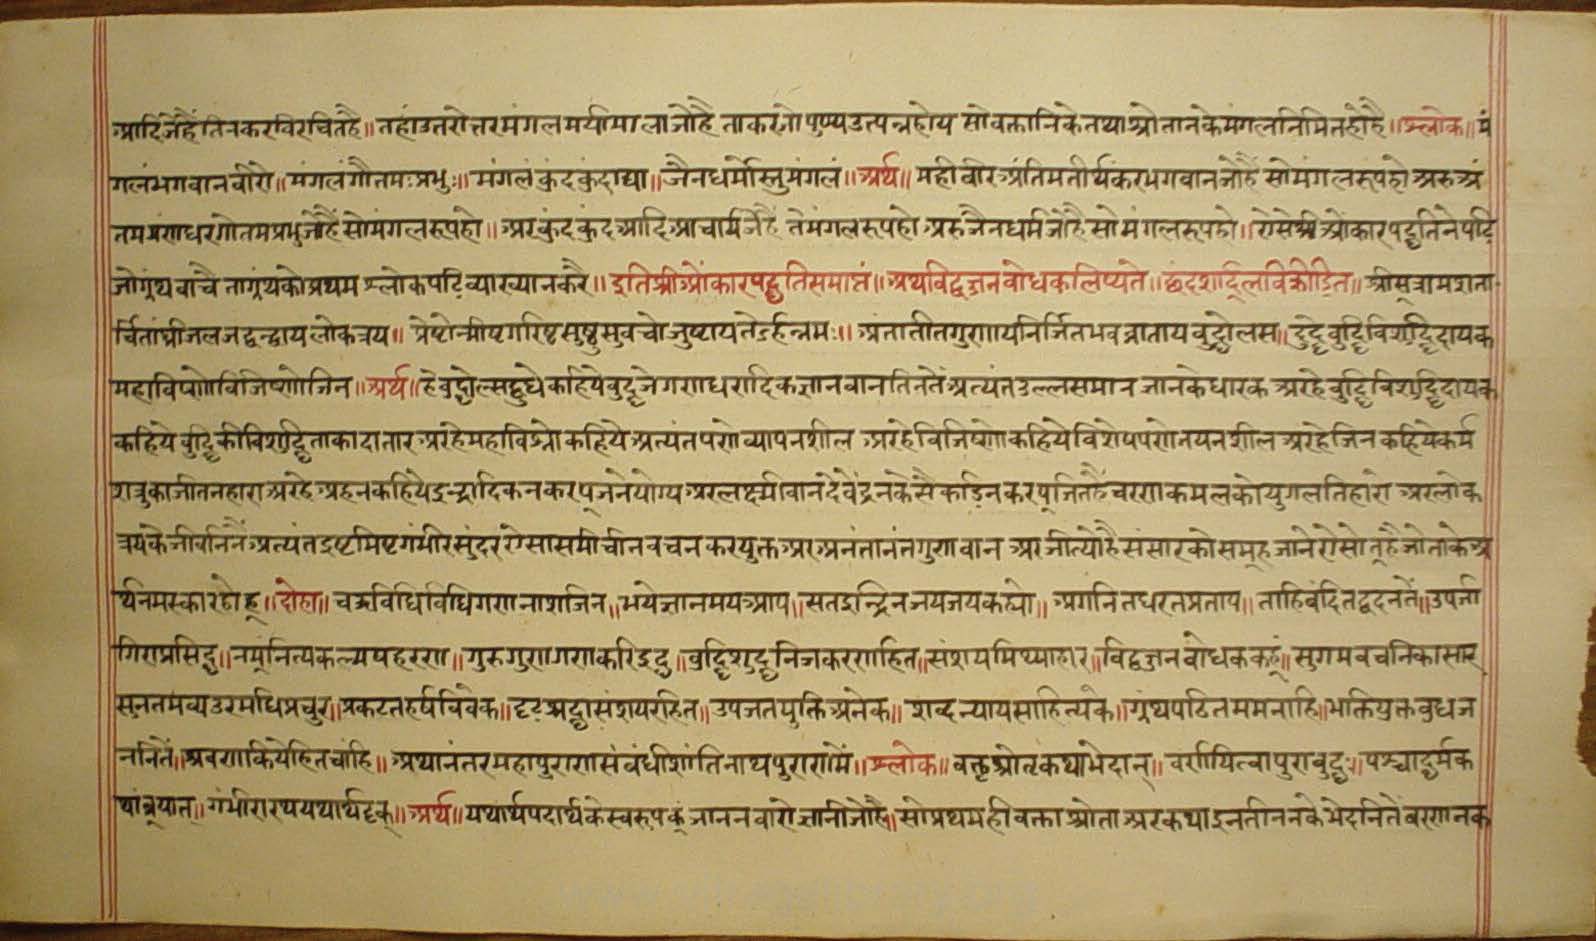 आदिजेहैंतिनकरविरचितहै॥ तहांउतरोत्तरमंगलमयीमालाजोहै ताकरजोपुण्यउत्पन्नहोय सोवक्तानिकेतथाश्रोतानकेमंगलनिमितहोहै॥श्लोक॥मं
गलंभगवानवीरो॥मंगलंगौतमःप्रभुः॥मंगलंकुंदकुंदाद्या॥जैनधर्मोस्तुमंगलं॥अर्थ॥महावीरअंतिमतीर्थंकरभगवानजोहैं सोमंगलरूपहो अरुअं
तमगणधरगोतमप्रभुजोहैंसोमंगलरूपहो॥अरकुंदकुंदआदिआचार्यजेहैं तेमंगलरूपहो अरुजैनधर्मजोहैसोमंगलरूपहो॥ऐसेश्रीओंकारपद्धतिनेपढि
जोग्रंथवाचै ताग्रंथकोप्रथम श्लोकपढिव्याख्यानकरै॥इतिश्रीओंकारपद्धतिसमाप्तं॥अथविद्वज्जनबोधकलिप्यते॥छंदशार्दूलविक्रीडित॥श्रीसत्रामशता
र्चितांघ्रीजलजद्वन्द्वायलोकत्रय॥प्रेष्टोन्मीष्टगरिष्टसुष्टुसुवचोजुष्टायतेर्हन्नमः॥अंतातीतगुणायनिर्जितभवव्राताय बुद्धोलस॥द्बुद्धेबुद्धिविशुद्धिदायक
महाविष्णोविजिष्णोजिन॥अर्थ॥हेबुद्धोल्सद्बुधेकहियेबुद्धजेगणधरादिकज्ञानवानतिनतेंअत्यंतउल्लसमानज्ञानकेधारक अरहेबुद्धिविशुद्धिदायक
कहियेबुद्धिकीविशुद्धिताकादातारअरहेमहाविष्नोकहियेअत्यंतपणेव्यापनशील अरहेविजिष्णोकहियेविशेषपणेनयनशील अरहेजिनकहियेकर्म
शत्रुकाजीतनहाराअरहेअर्हनकहियेइन्द्रादिकनकरपूजनेयोग्य अरलक्ष्मीवानदेवेंद्रनकेसैकडानिकरपूजितहैचरणकमलकोयुगलतिहारो अरलोक
त्रयकेजीवनिनैंअत्यंतइष्टमिष्टगंभीरसुंदरऐसासमीचीनवचनकरयुक्तअरअनंतानंतगुणवान अरजीत्योहैसंसारकोसमूहजानेऐसोतूहैजोताकेअ
र्थिनमस्कारहोहू॥दोहा॥चऊविधिविधिगणनाशजिन॥भयेज्ञानमयआप॥सतइन्द्रिनजयजयकह्यो॥अगनितधरतप्रताप॥ताहिवंदितद्वदनतें॥उपजी
गिराप्रसिद्ध॥नमूंनित्यकल्मषहरण॥गुरुगुणगणकरिइद्ध॥बुद्धिशुद्धनिजकरणहित॥संशयमिथ्याहार॥विद्वज्जनबोधककहूं॥सुगमवचनिकासार
सुनतभव्यउरमधिप्रचुर॥प्रकटतहर्षविवेक॥दृढश्रद्धासंशयरहित॥उपजतयुक्तिअनेक॥शब्दन्यायसाहित्यके॥ग्रंथपठितममनाहि॥भक्तियुक्तबुधज
ननितें॥श्रवणकियेहितचांहि॥अथानंतरमहापुराणसंबंधीशांतिनाथपुराणमें॥श्लोक॥वक्तृश्रोतृकथाभेदान्॥वर्णयित्वापुराबुद्धः॥पश्चाद्धर्मक
थांब्रूयात्॥गंभीरारथयथार्थदृक्॥अर्थ॥यथार्थपदार्थकेस्वरूपकूंजाननवारोज्ञानीजोहै॥सोप्रथमहीवक्ताश्रोताअरकथाइनतीननकेभेदनितेंवरणनक